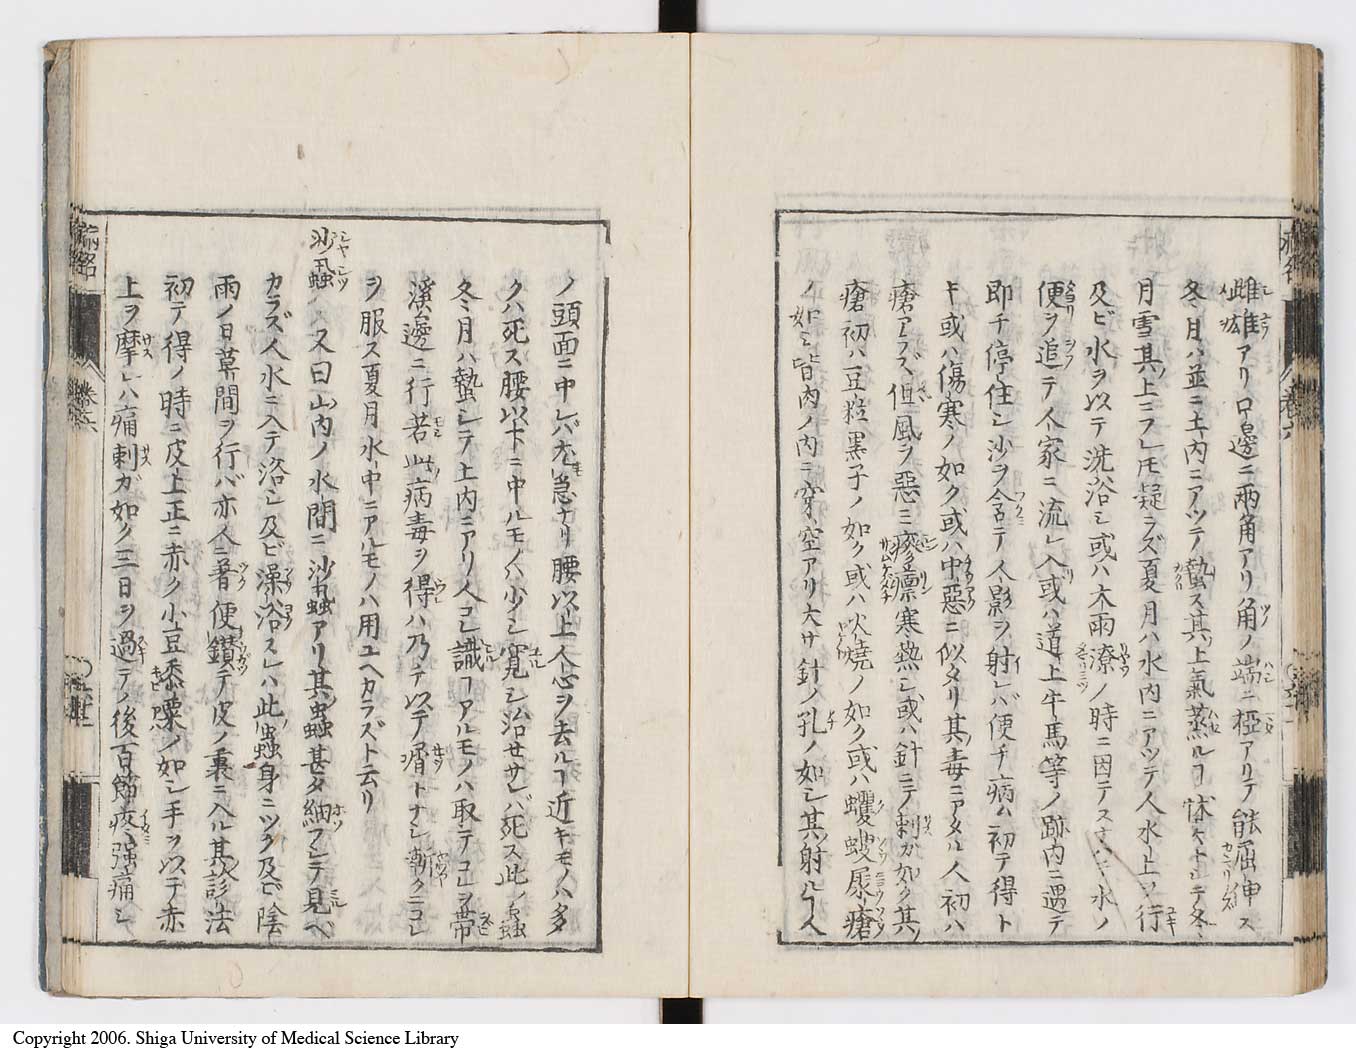 雌雄アリ口邊ニ兩角アリ角ノ端ニ椏アリテ能屈伸ス
冬月ハ並ニ土内ニアツテ蟄ス其上氣蒸ルヿ休々トシテ冬
月雪其上ニフレモ凝ラズ夏月ハ水内ニアツテ人水上ヲ行
及ビ水ヲ以テ洗浴シ或ハ大雨潦ノ時ニ因テ水ノ
便ヲ追テ人家ニ流レ入或ハ道上牛馬等ノ跡内ニ遇テ
即チ停住シ沙ヲ含テ人影ヲ射レバ便チ病ム初テ得ト
キ或ハ傷寒ノ如ク或ハ中惡ニ似タリ其毒ニアタル人初ハ
瘡アラズ但風ヲ惡ミ㾕瘭寒熱シ或ハ針ニテ刺ガ如ク其
瘡初ハ豆粒黑子ノ如ク或ハ火燒ノ如ク或ハ蠼螋尿瘡
ノ如シ皆肉ノ内ニ穿空アリ大サ針ノ孔ノ如シ其射ルヿ人
ノ頭面ニ中レバ尤急ナリ腰以上人心ヲ去ルヿ近キモノハ多
クハ死ス腰以下ニ中ルモノハ少シ寛シ治セサレバ死ス此蟲
冬月ハ蟄シテ土内ニアリ人コレ識ヿアルモノハ取テコレヲ帶
溪邊ニ行若此病毒ヲ得ハ乃チ以テ屑トナシ漸クニコレ
ヲ服ス夏月水中ニアルモノハ用ユヘカラズト云リ
沙虱蟲 又曰山内ノ水間ニ沙虱蟲アリ其蟲甚タ細フシテ見ベ
カラズ人水ニ入テ浴シ及ビ澡浴スレハ此蟲身ニツク及ビ陰
雨ノ日草間ヲ行バ亦人ニ著便鑚テ皮ノ裏ニ入ル其診法
初テ得ノ時ニ皮上正ニ赤ク小豆黍粟ノ如シ手ヲ以テ赤
上ヲ摩レハ痛刺ガ如ク三日ヲ過テノ後百節疼強痛シ
卷六
Copyright 2006. Shiga University of Medical Science Library